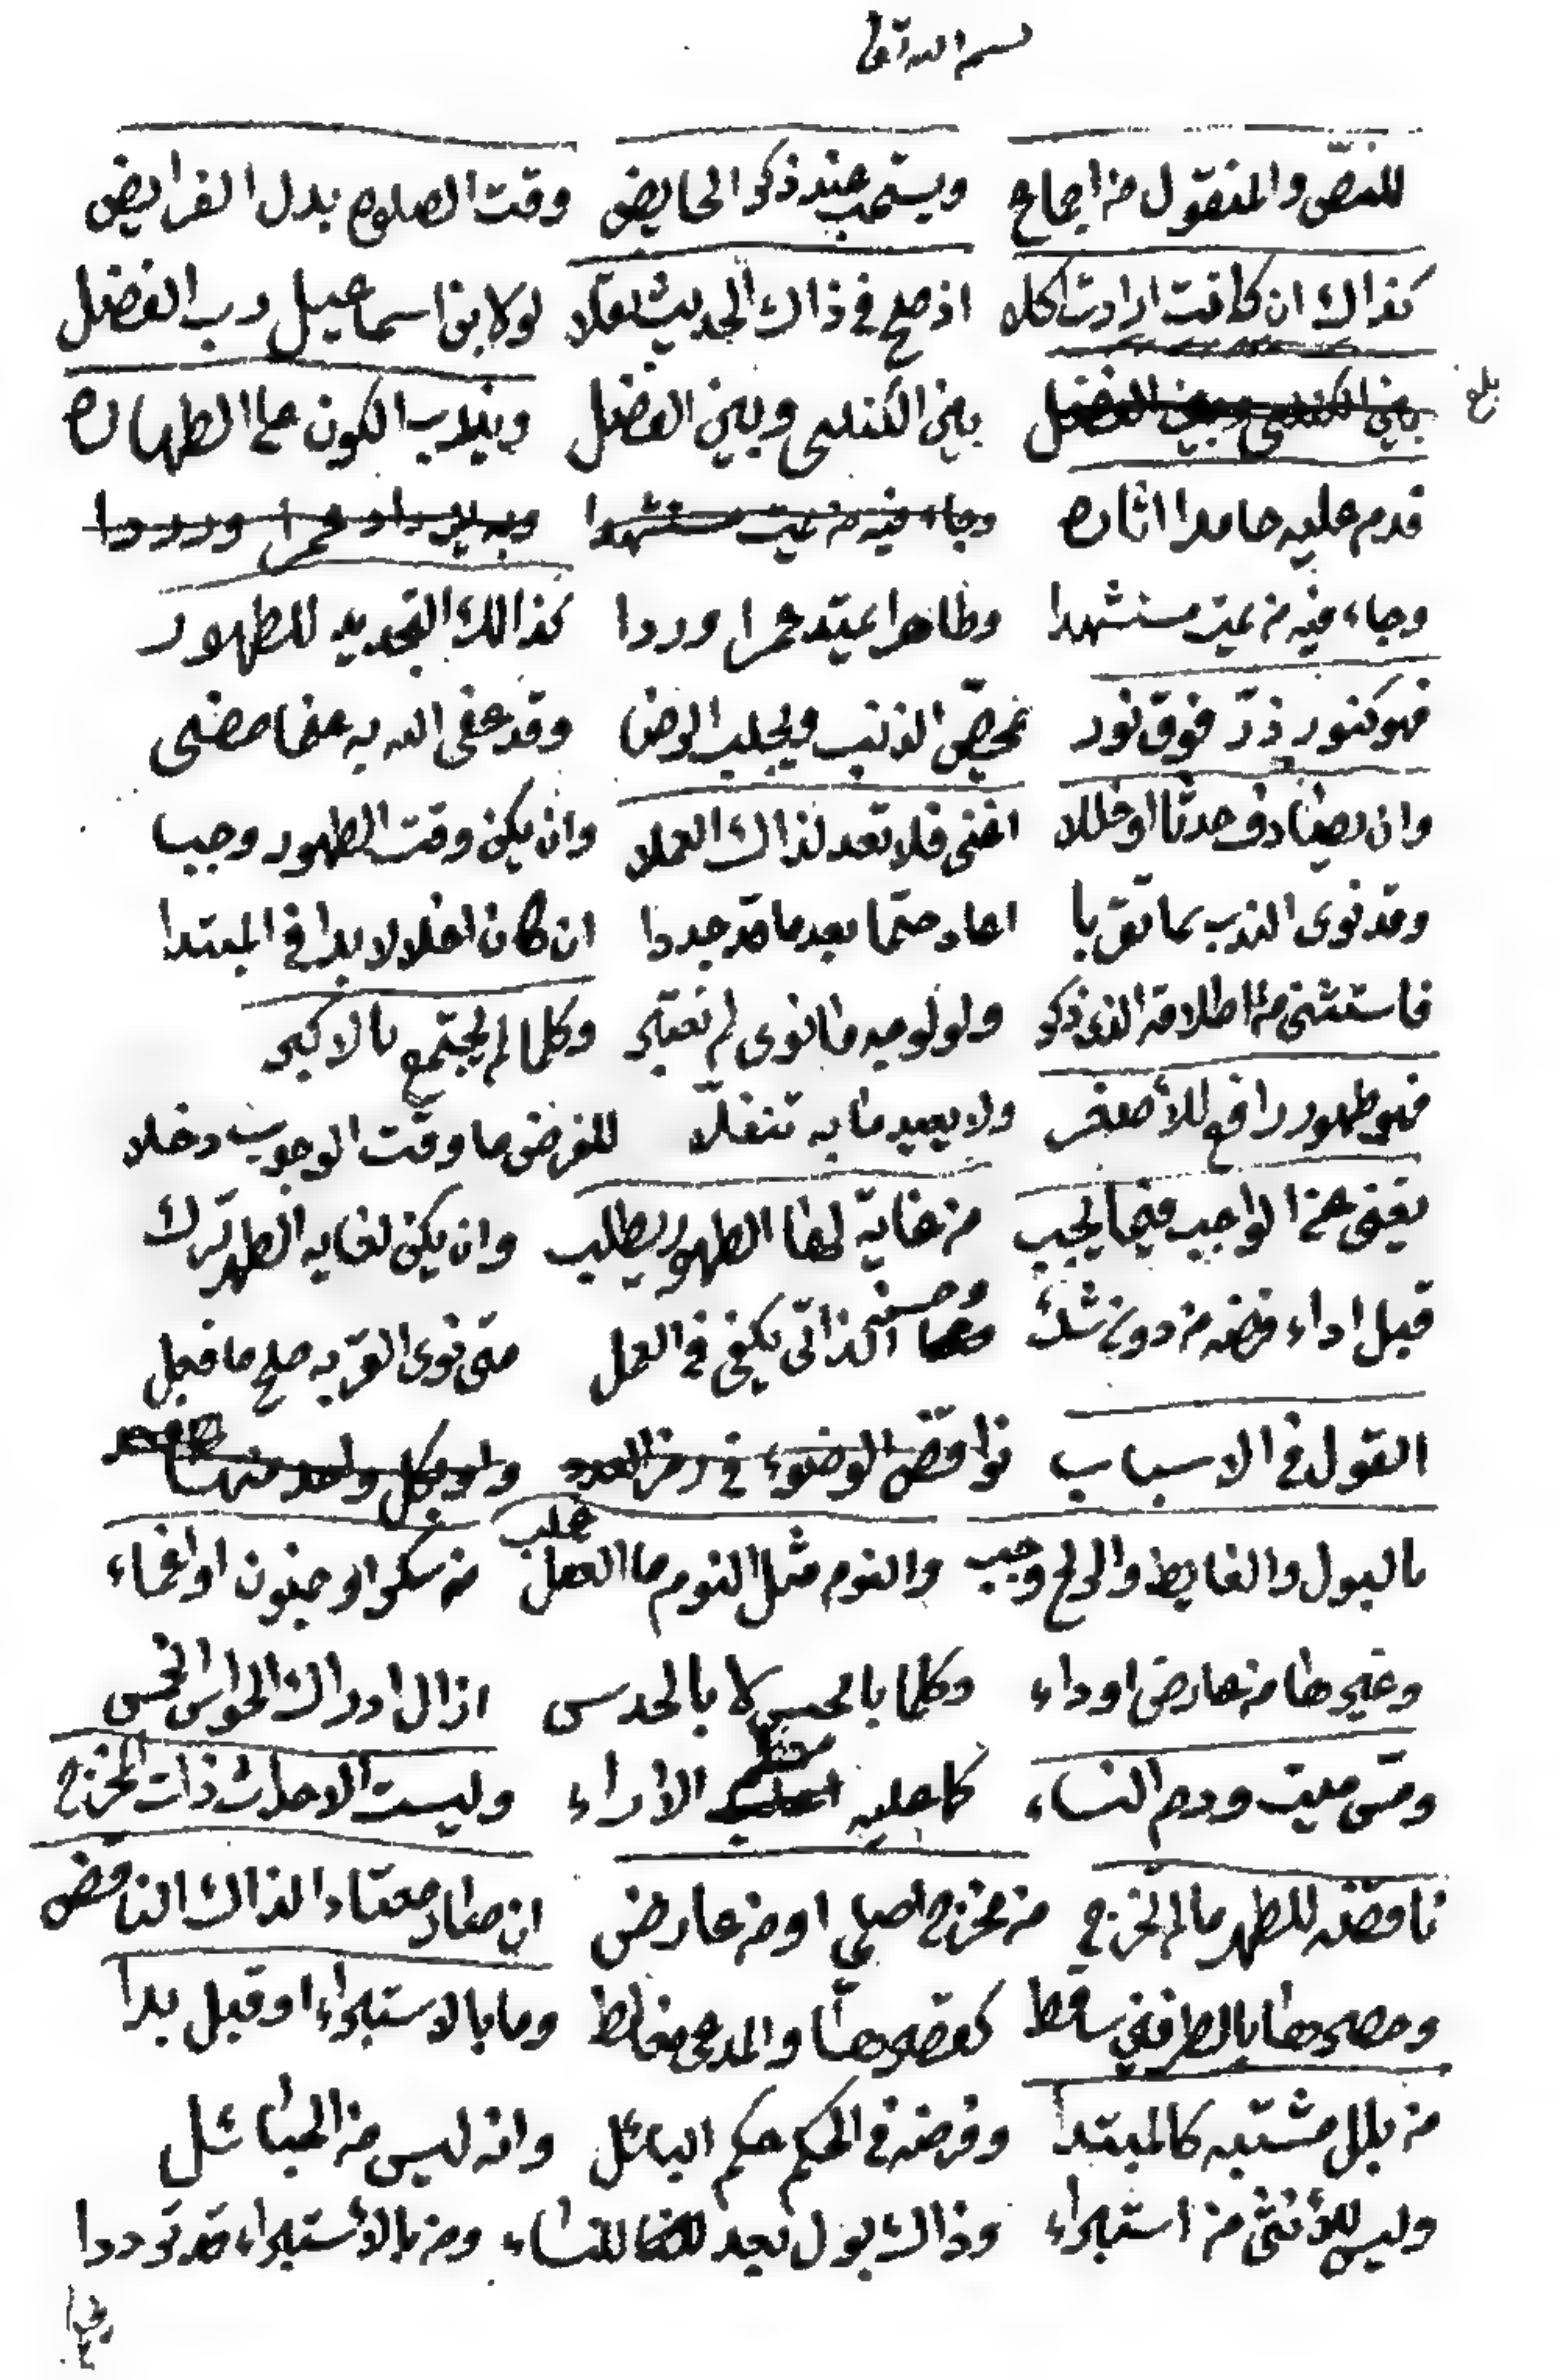 بسم الله تعالى
للنص والمنقول من اجماع ويستحب عند ذكر الحايض وقت الصلوة بدل الفرايض
كذاك ان كانت ارادت اكلا اذ صح في ذاك الحديث نقلا لولا بن اسماعيل رب الفضل
بلغ
بين الكندي وبين الفضل بين الكندي وبين الفضل ويندب الكون على الطهاره
قدم عليه حامدا اثاره وجاء فيه من يمت مستشهدا وبه يزداد عمرا ورددا
وجاء فيه من يمت مستشهدا وطاهرا يمتد عمرا وردا كذالك التجديد للطهور
فهو كنور ذرّ فوق نور يمحّص الذنب ويجلب الرضا وقد عفى الله به عما مضى
وان يصادف حدثا او خللا اغنى فلا تعد لذاك العملا وان يكن وقت الطهور وجبا
وقد نوى الندب بما تقربا اعاد حتما بعد ما قد جددا ان كان اخلالا بدا في المبتدا
فاستثنى من اطلاقه الذى ذكر ولو لوجه مانوى لم نعتبر وكلما لم يجتمع بالاكبر
فهو طهور رافع للأصغر ولا يعيد ما به تنفلّا للفرض ما وقت الوجوب دخلا
يغنى عن الواجب فيما يجب من غاية لها الطهور يطلب وان يكن لغايه الطهر ترك
قبل اداء فرضه من دون شك وحسنه الذاتى يكفى في العمل متى نوى القربه صح ما فعل
القول في الاسباب نواقض الوضوء في رمز العدد واد بكل واحد منها
بالبول والغايط والريح وجب والنوم مثل النوم ما العقل غلب من سكر او جنون او اغماء
وغيرها من عارض او داء وكلما بالحس لا بالحدس ازال ادراك الحواس الخمس
ومسّ ميت ودم النساء كما عليه الاراء وليست الاحداث ذات المخرج
ناقضة للطهر مالم تخرج من مخرج اصلي او من عارض ان صار معتادا لذاك الناقض
وحصرها بالطرفين ساقط كقصرها والمدعى مغالط وما بالاستبراء او قبل بدا
من بلل مشتبه كالمبتدا وفرضه في الحكم حكم البائل وانه ليس من الحبائل
وليس للأنثى من استبراء وذاك بول بعد للنساء ومن بالأستبراء قد ترددا